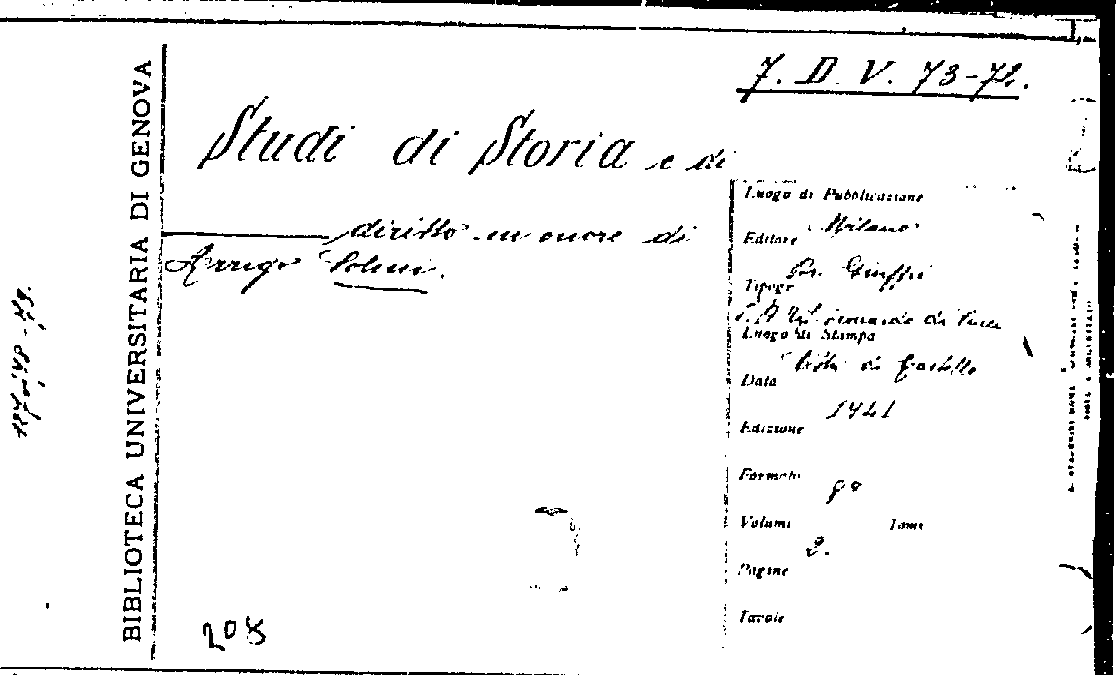 7. D. V. 73-72.
Studi di Storia e di
diritto in onore di
Arrigo Solmi.
BIBLIOTECA UNIVERSITARIA DI GENOVA
Luogo di Pubblicazione
Milano
Editore
Giuffrè
Tipogr
di
Luogo di Stampa
Città di Castello
Data
1941
Edizione
Formato
8º
Volumi Tomi
2.
Pagine
Tavole
208